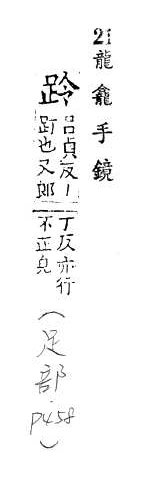 21龍龕手鏡
跉
呂貞反丨
丁反亦行
趵也又郎
不正皃
(足部.P458)